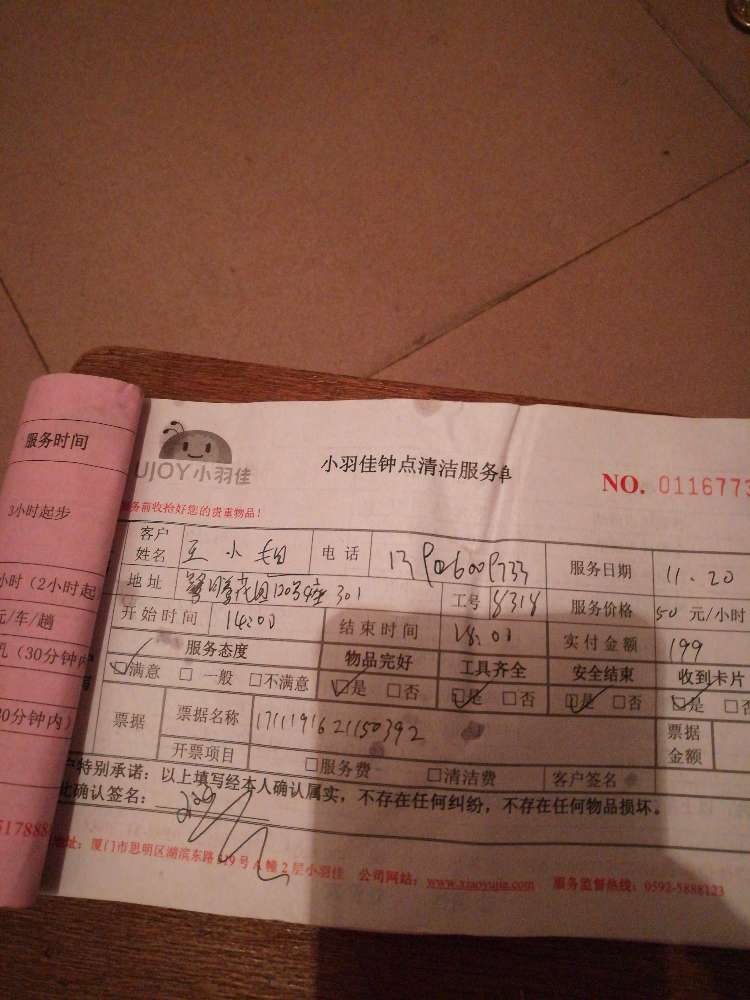 服务时间
3小时起步
小时(2小时起
元/车/趟
孔(30分钟内
30分钟内)
5178888
UJOY小羽佳
小羽佳钟点清洁服务单
NO. 0116773
务前收拾好您的贵重物品!
客户姓名 王小姐 电话 服务日期 11.20
地址 301 工号 8318 服务价格 50 元/小时
开始时间 14:00 结束时间 18:00 实付金额 199
服务态度 物品完好 工具齐全 安全结束 收到卡片
☑满意 □ 一般 □不满意 ☑是 □否 ☑是 □否 ☑是 □否 ☑是 □否
票据 票据名称 1711191621150392 票据金额
开票项目 □服务费 □清洁费 客户签名
户特别承诺:以上填写经本人确认属实,不存在任何纠纷,不存在任何物品损坏。
此确认签名:
地址:厦门市思明区湖滨东路319号A幢2层小羽佳 公司网站:www.xiaoyujia.com 服务监督热线:0592-5888123